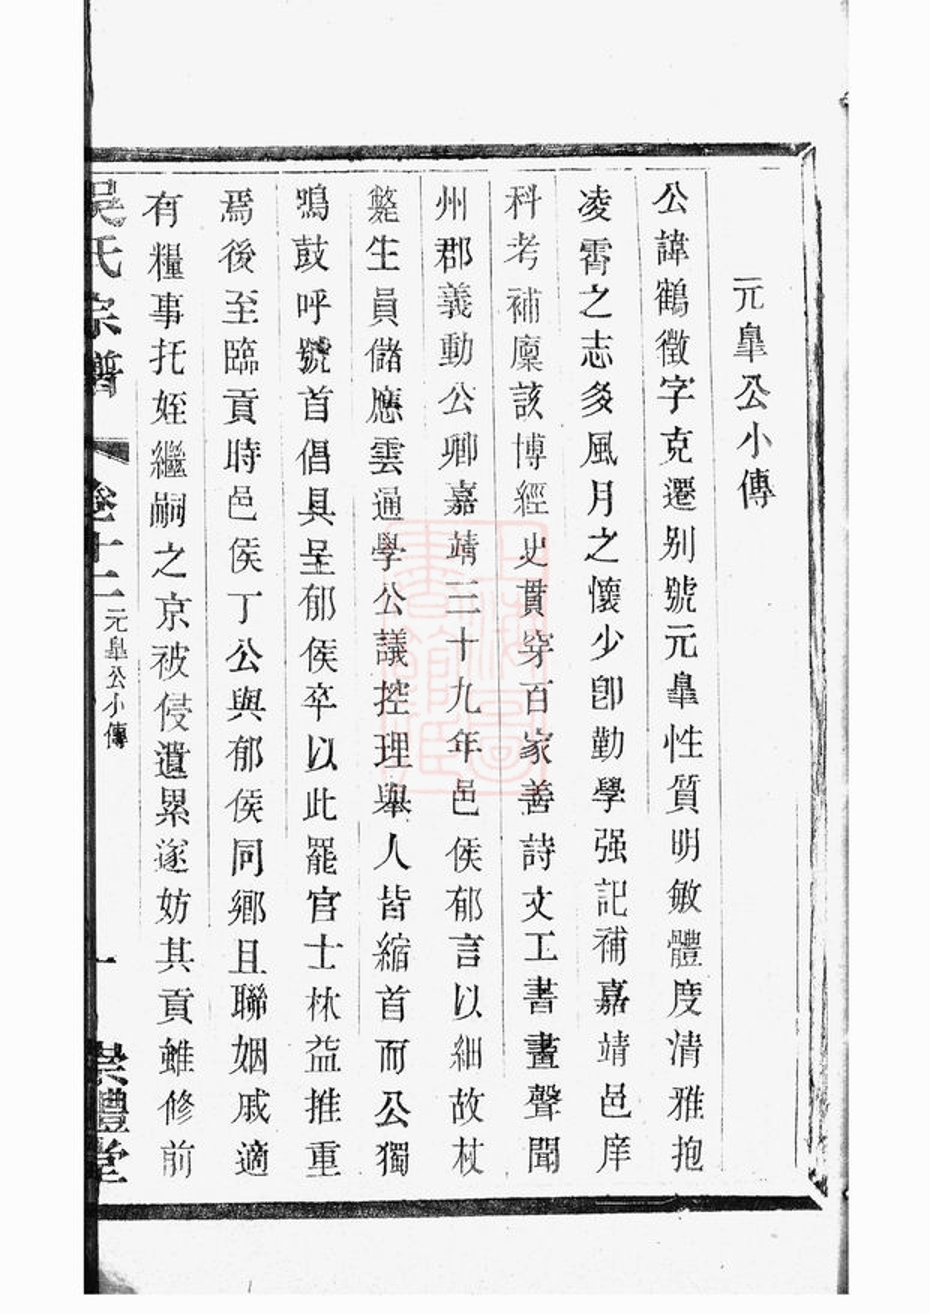 元臯公小傳
公諱鶴徵字克遷别號元臯性質明敏體度清雅抱
凌霄之志多風月之懷少卽勤學强記補嘉靖邑庠
科考補廩該博經史貫穿百家善詩文工書畫聲聞
州郡義動公卿嘉靖三十九年邑侯郁言以細故杖
斃生員儲應雲通學公議控理舉人皆縮首而公獨
鳴鼓呼號首倡具呈郁侯卒以此罷官士林益推重
焉後至臨貢時邑侯丁公與郁侯同鄉且聯姻戚適
有糧事托姪繼嗣之京被侵遺累遂妨其貢雖修前
吳氏宗譜 卷十二 元臯公小傳 一 崇禮堂